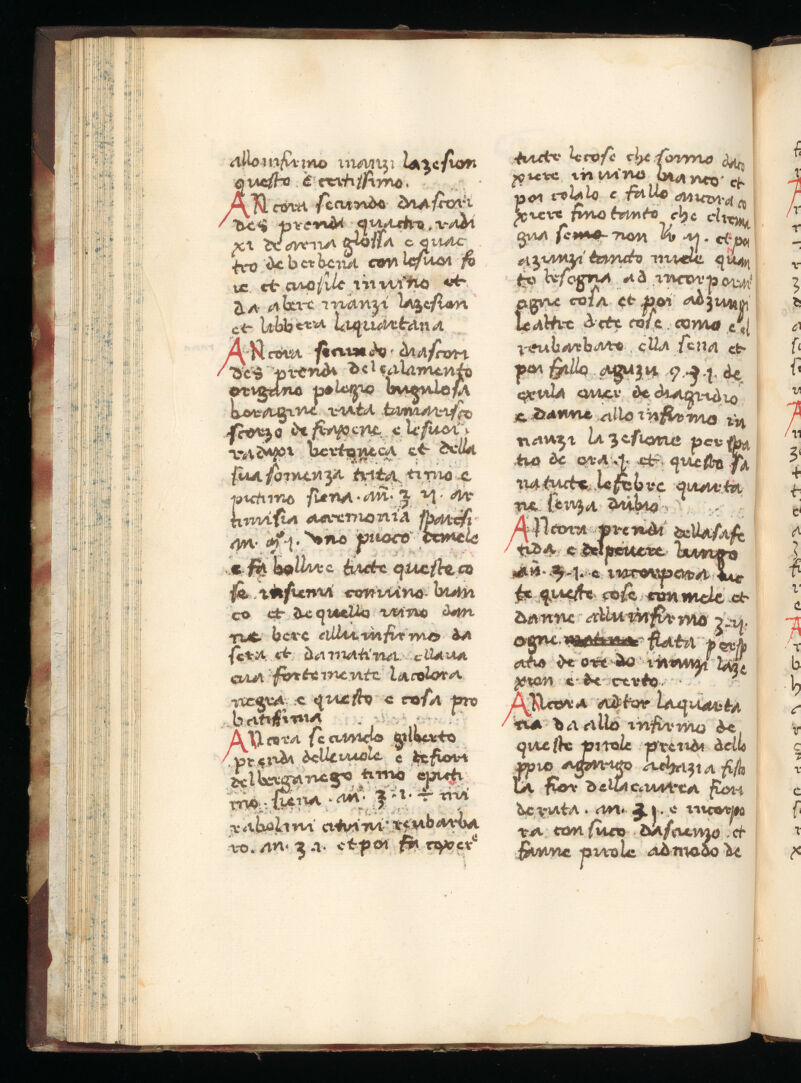 allo infirmo inanzi lazesion
questo é certissimo.
ANcora secundo diascori
des prendi quactro. radi
xi de arna glossa e quac
tro de berbena con lesuoi fo
ie et cuosile in uino et
da abere inanzi lazesion
et libbera laquartana
ANcora secundo diascori
des prendi del calamento
origano polezio buglosa
boragine ruta tamarisco
scorzo de fraxene e le suoi
radixi bertoneca et della
sua somenza trita timo e
pictimo siena. añ. ʒ ij. ar
timisia acremonia sparesi
an. . j. Vno puoco demele
e fa bollire tucte queste co
se insiemi con uino bian
co et de quello uino dan
ne bere allu infirmo da
sera et da matina ella ua
cua fortemente la colora
negra e questo e cosa pro
batissima
ANcora secundo gilberto
prendi delle uiole e de fiori
del berganego timo epicti
mo. siena. añ. ʒ. j. ÷ mi
rabolini citrini reubarba
ro. an. ʒ ɪ. et poi fa coxere
tucte le cose che sonno daco
xiere in uino bianco et
poi colalo e fallo ancora co
xiere fino tanto che cliema
gna semo non lb ij. et poi
azunzi tancto miele quan
to besogna ad incorporar
ogne cosa et poi adzunzi
le altre dcte cose como e el
reubarbaro ella sena et
poi fallo aguzu . j. de
exula ouer de diagridio
e danne allo infirmo in
nanzi la zesione per spa
tio de ora .j. et questo sa
na tucte lefebre quarta
ne senza dubio
ANcora prendi dellasafe
tida e del peuere lungo
añ. ʒ. j. e incorpora tuc
te queste cose con mele et
danne allu infirmo ʒ. ij.
ogne matina fiata per sp
atio de ore do inanzi laze
xion e de certo.
ANcora ad tor laquarta
na da allo infirmo de
queste pirole prendi dello
ppio agarigo achazia fisto
la fior della cuurea fiori
de ruta. an. ʒ j. e incorpo
ra con suco dascienzo. et
fanne pirole ad modo de